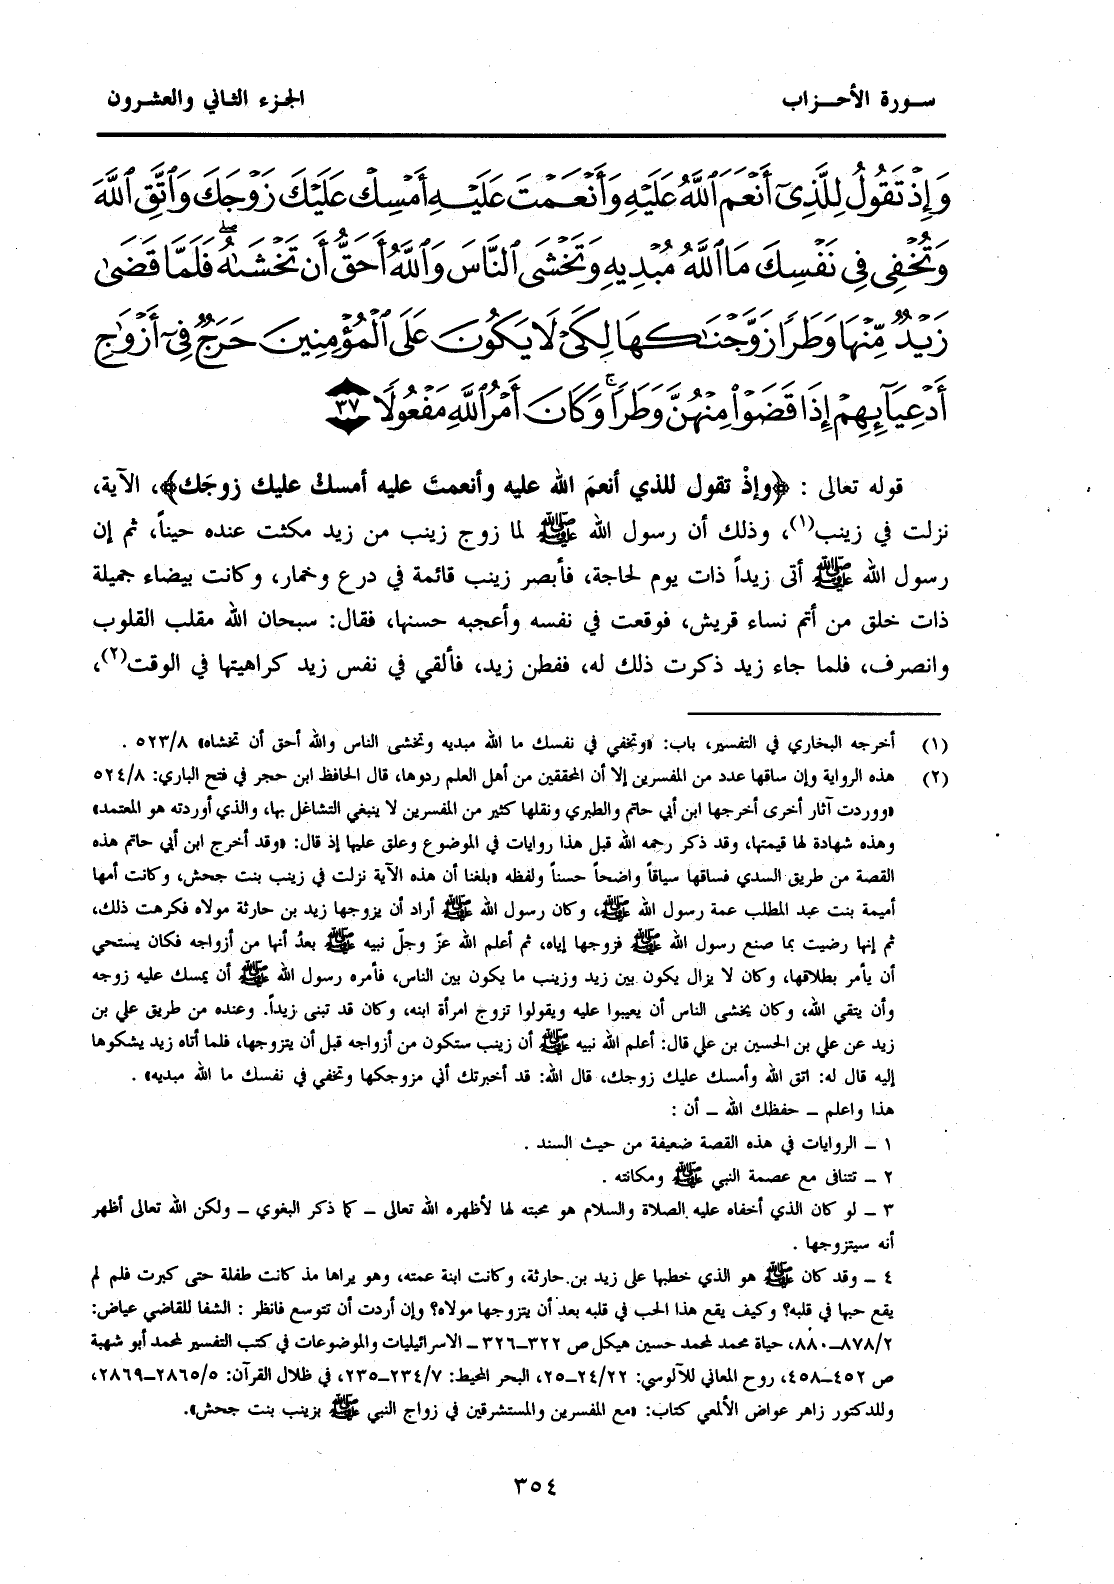 سورة الأحزاب
الجزء الثاني والعشرون
وَإِذْ تَقُولُ لِلَّذِىٓ أَنْعَمَ ٱللَّهُ عَلَيْهِ وَأَنْعَمْتَ عَلَيْهِ أَمْسِكْ عَلَيْكَ زَوْجَكَ وَٱتَّقِ ٱللَّهَ
وَتُخْفِى فِى نَفْسِكَ مَا ٱللَّهُ مُبْدِيهِ وَتَخْشَى ٱلنَّاسَ وَٱللَّهُ أَحَقُّ أَن تَخْشَىٰهُ ۖ فَلَمَّا قَضَىٰ
زَيْدٌ مِّنْهَا وَطَرًا زَوَّجْنَٰكَهَا لِكَىْ لَا يَكُونَ عَلَى ٱلْمُؤْمِنِينَ حَرَجٌ فِىٓ أَزْوَٰجِ
أَدْعِيَآئِهِمْ إِذَا قَضَوْا۟ مِنْهُنَّ وَطَرًا ۚ وَكَانَ أَمْرُ ٱللَّهِ مَفْعُولًا ٣٧
قوله تعالى : ﴿وإذْ تقول للذي أنعمَ الله عليه وأنعمتَ عليه أمسكْ عليك زوجَك﴾، الآية،
نزلت في زينب(١)، وذلك أن رسول الله ﷺ لما زوج زينب من زيد مكثت عنده حيناً، ثم إن
رسول الله ﷺ أتى زيداً ذات يوم لحاجة، فأبصر زينب قائمة في درع وخمار، وكانت بيضاء جميلة
ذات خلق من أتم نساء قريش، فوقعت في نفسه وأعجبه حسنها، فقال: سبحان الله مقلب القلوب
وانصرف، فلما جاء زيد ذكرت ذلك له، ففطن زيد، فألقي في نفس زيد كراهيتها في الوقت(٢)،
(١) أخرجه البخاري في التفسير، باب: «وتخفي في نفسك ما الله مبديه وتخشى الناس والله أحق أن تخشاه» ٥٢٣/٨ .
(٢) هذه الرواية وإن ساقها عدد من المفسرين إلا أن المحققين من أهل العلم ردوها، قال الحافظ ابن حجر في فتح الباري: ٥٢٤/٨
«ووردت آثار أخرى أخرجها ابن أبي حاتم والطبري ونقلها كثير من المفسرين لا ينبغي التشاغل بها، والذي أوردته هو المعتمد»
وهذه شهادة لها قيمتها، وقد ذكر رحمه الله قبل هذا روايات في الموضوع وعلق عليها إذ قال: «وقد أخرج ابن أبي حاتم هذه
القصة من طريق السدي فساقها سياقاً واضحاً حسناً ولفظه «بلغنا أن هذه الآية نزلت في زينب بنت جحش، وكانت أمها
أميمة بنت عبد المطلب عمة رسول الله ﷺ، وكان رسول الله ﷺ أراد أن يزوجها زيد بن حارثة مولاه فكرهت ذلك،
ثم إنها رضيت بما صنع رسول الله ﷺ فزوجها إياه، ثم أعلم الله عزّ وجلّ نبيه ﷺ بعدُ أنها من أزواجه فكان يستحي
أن يأمر بطلاقها، وكان لا يزال يكون بين زيد وزينب ما يكون بين الناس، فأمره رسول الله ﷺ أن يمسك عليه زوجه
وأن يتقي الله، وكان يخشى الناس أن يعيبوا عليه ويقولوا تزوج امرأة ابنه، وكان قد تبنى زيداً. وعنده من طريق علي بن
زيد عن علي بن الحسين بن علي قال: أعلم الله نبيه ﷺ أن زينب ستكون من أزواجه قبل أن يتزوجها، فلما أتاه زيد يشكوها
إليه قال له: اتق الله وأمسك عليك زوجك، قال الله: قد أخبرتك أني مزوجكها وتخفي في نفسك ما الله مبديه» .
هذا واعلم ــ حفظك الله ــ أن :
١ ــ الروايات في هذه القصة ضعيفة من حيث السند .
٢ ــ تتنافى مع عصمة النبي ﷺ ومكانته .
٣ ــ لو كان الذي أخفاه عليه الصلاة والسلام هو محبته لها لأظهره الله تعالى ــ كما ذكر البغوي ــ ولكن الله تعالى أظهر
أنه سيتزوجها .
٤ ــ وقد كان ﷺ هو الذي خطبها على زيد بن حارثة، وكانت ابنة عمته، وهو يراها مذ كانت طفلة حتى كبرت فلم لم
يقع حبها في قلبه؟ وكيف يقع هذا الحب في قلبه بعد أن يتزوجها مولاه؟ وإن أردت أن تتوسع فانظر : الشفا للقاضي عياض:
٨٧٨/٢ــ٨٨٠، حياة محمد لمحمد حسين هيكل ص ٣٢٢ــ٣٢٦ ــ الاسرائيليات والموضوعات في كتب التفسير لمحمد أبو شهبة
ص ٤٥٢ــ٤٥٨، روح المعاني للآلوسي: ٢٤/٢٢ــ٢٥، البحر المحيط: ٢٣٤/٧ــ٢٣٥، في ظلال القرآن: ٢٨٦٥/٥ــ٢٨٦٩،
وللدكتور زاهر عواض الألمعي كتاب: «مع المفسرين والمستشرقين في زواج النبي ﷺ بزينب بنت جحش».
٣٥٤